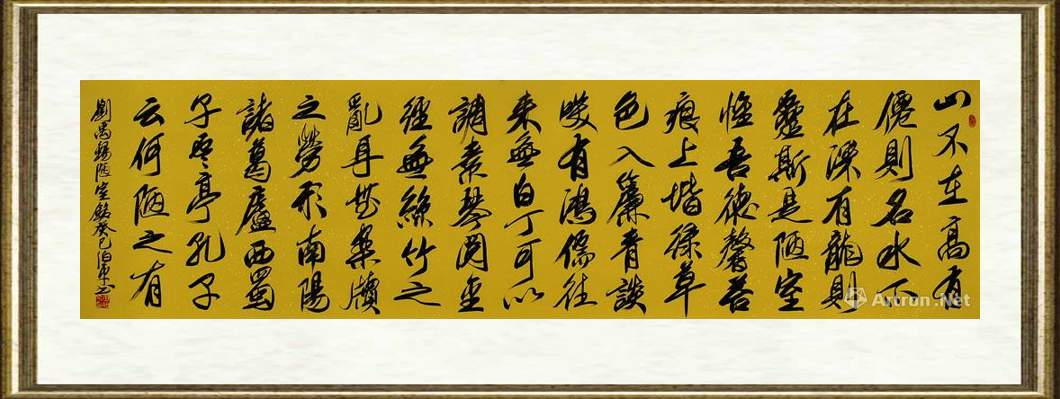 山不在高有
僊則名水不
在深有龍則
靈斯是陋室
惟吾德馨苔
痕上堦綠草
色入簾青談
咲有鴻儒往
来無白丁可以
調素琴閱金
經無絲竹之
亂耳無案牘
之勞形南陽
諸葛廬西蜀
子雲亭孔子
云何陋之有
劉禹錫陋室銘癸巳伯軍书
Artron.Net